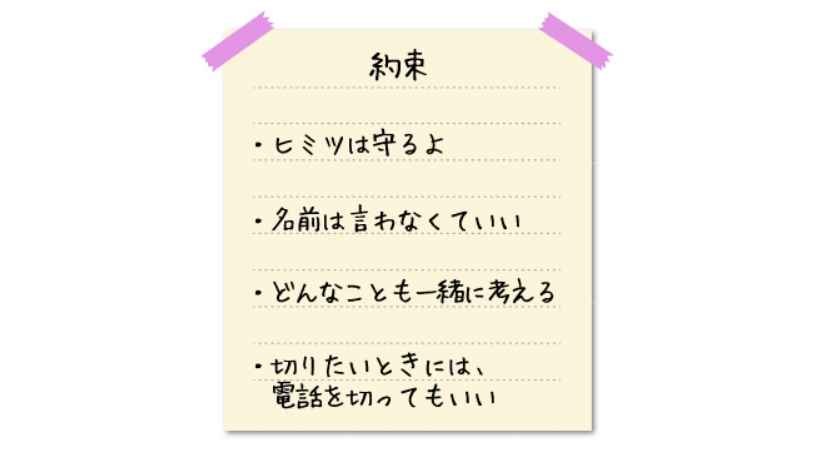 約束
・ヒミツは守るよ
・名前は言わなくていい
・どんなことも一緒に考える
・切りたいときには、
電話を切ってもいい